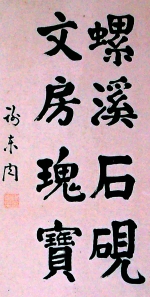 螺溪石硯
文房瑰寶
謝東閔